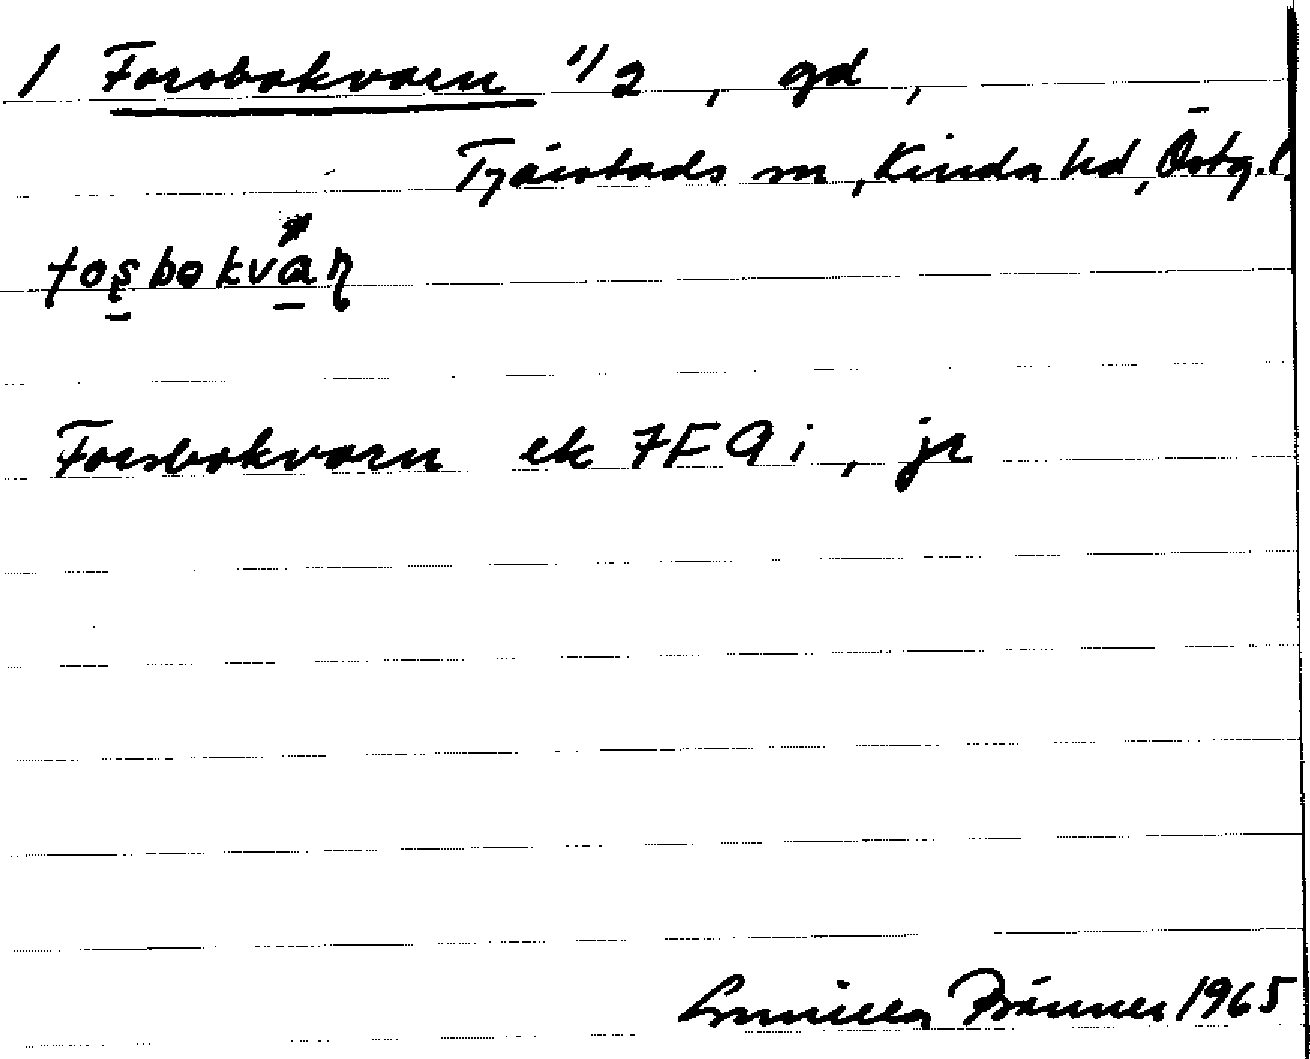 1 Forsbokvarn 1/2, gd,
Tjärstads sn, Kinda hd, Östg. l.
fos̱bokva̱ɳ
Forsbokvarn ek 7F9i, jr
Gunilla Brånner 1965